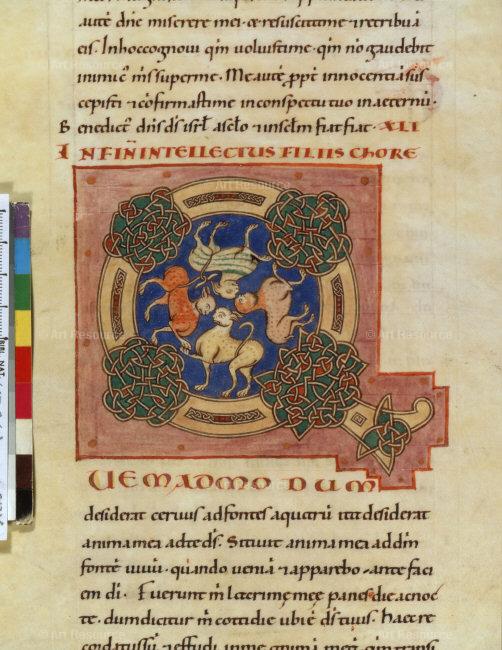 autē dñe miserere mei · et resuscita me · et retribuā
eis. In hoc cognovi qm̄ voluisti me · qm̄ nō gaudebit
inimic' m̄s super me · Me autē ppt̄ innocentiā sus
cepisti · et cōfirmasti me in conspectu tuo in aeternū ·
Benedict' dñs ds̄ isrl̄ a sclo & in sclm̄ fiat fiat · XLI
IN FIÑ INTELLECTUS FILIIS CHORE
Q
UEMADMODUM
desiderat cervus ad fontes aquarū ita desiderat
anima mea ad te ds̄. Sitivit anima mea ad dm̄
fontē vivū · quando veniā & apparebo · ante faci
em di · Fuerunt m̄ lacrime mee panes die ac noc
te · dum dicitur m̄ cottidie ubi ē ds̄ tuus. Haec re
cordatus sū & effudi in me animā meā qm̄ transi
Art Resource
BIBL. NAT.